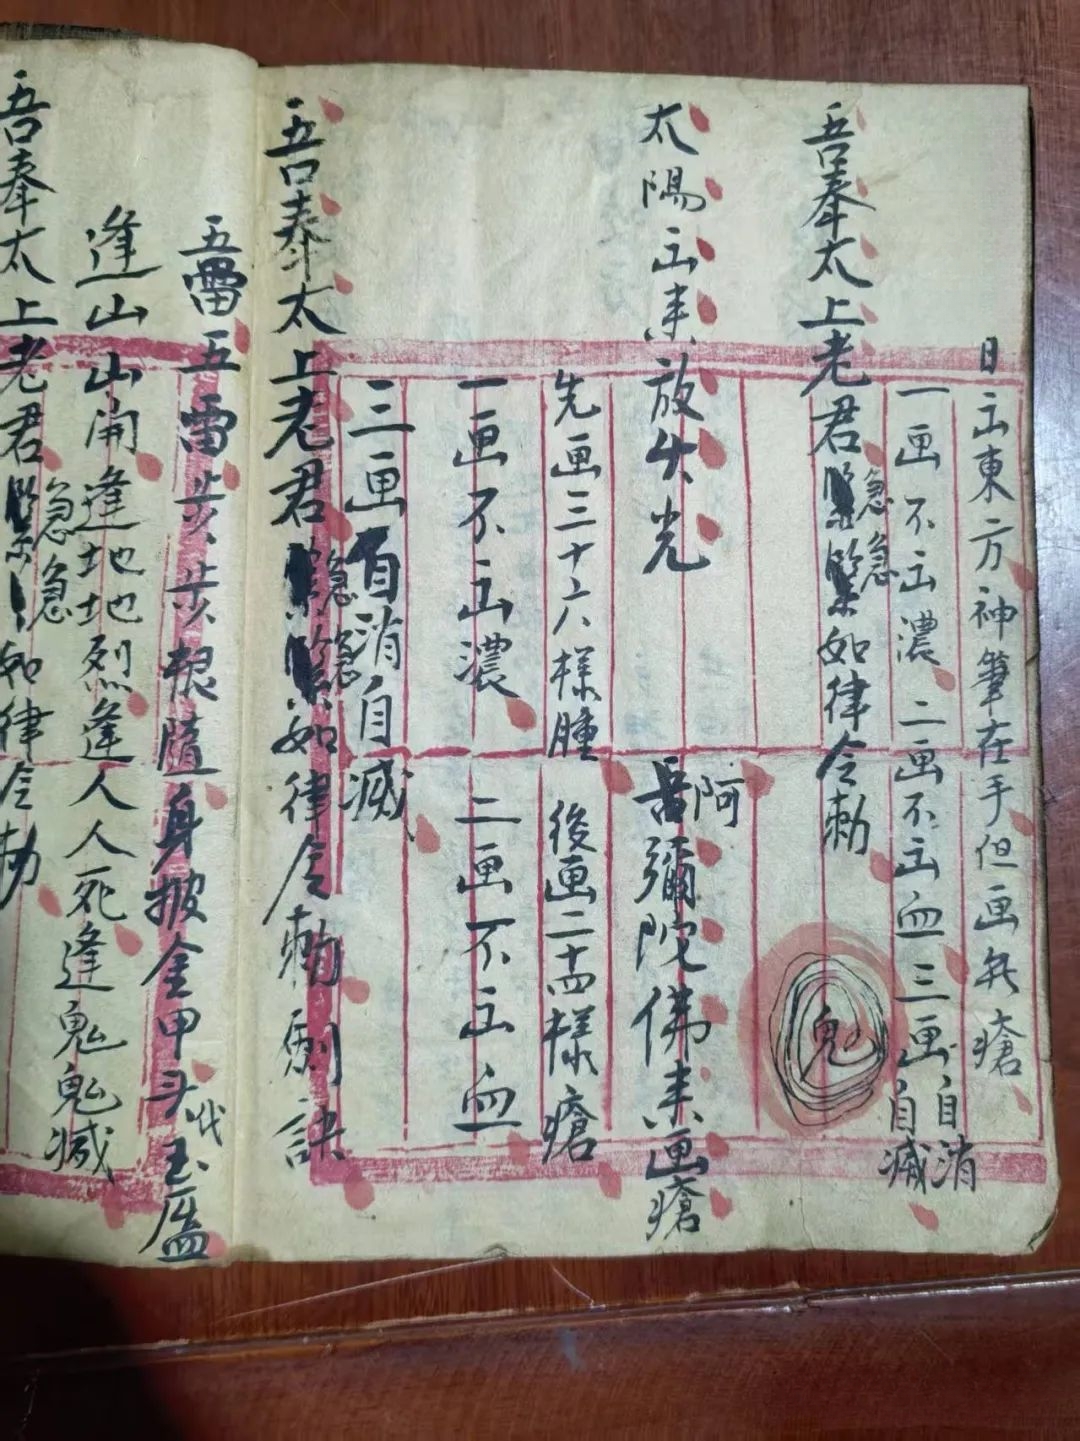 日出東方神筆在手但画無瘡
一画不出濃二画不出血三画自消自滅
吾奉太上老君急急如律令勅
鬼
太陽出来放光
阿彌陀佛来画瘡
先画三十六様腫後画二十四様瘡
一画不出濃二画不出血
三画自消自滅
吾奉太上老君急急如律令勅
訣
五雷五雷步步根隨身披金甲头代玉
逢山山開逢地地烈逢人人死逢鬼鬼滅
吾奉太上老君急急如律令勅